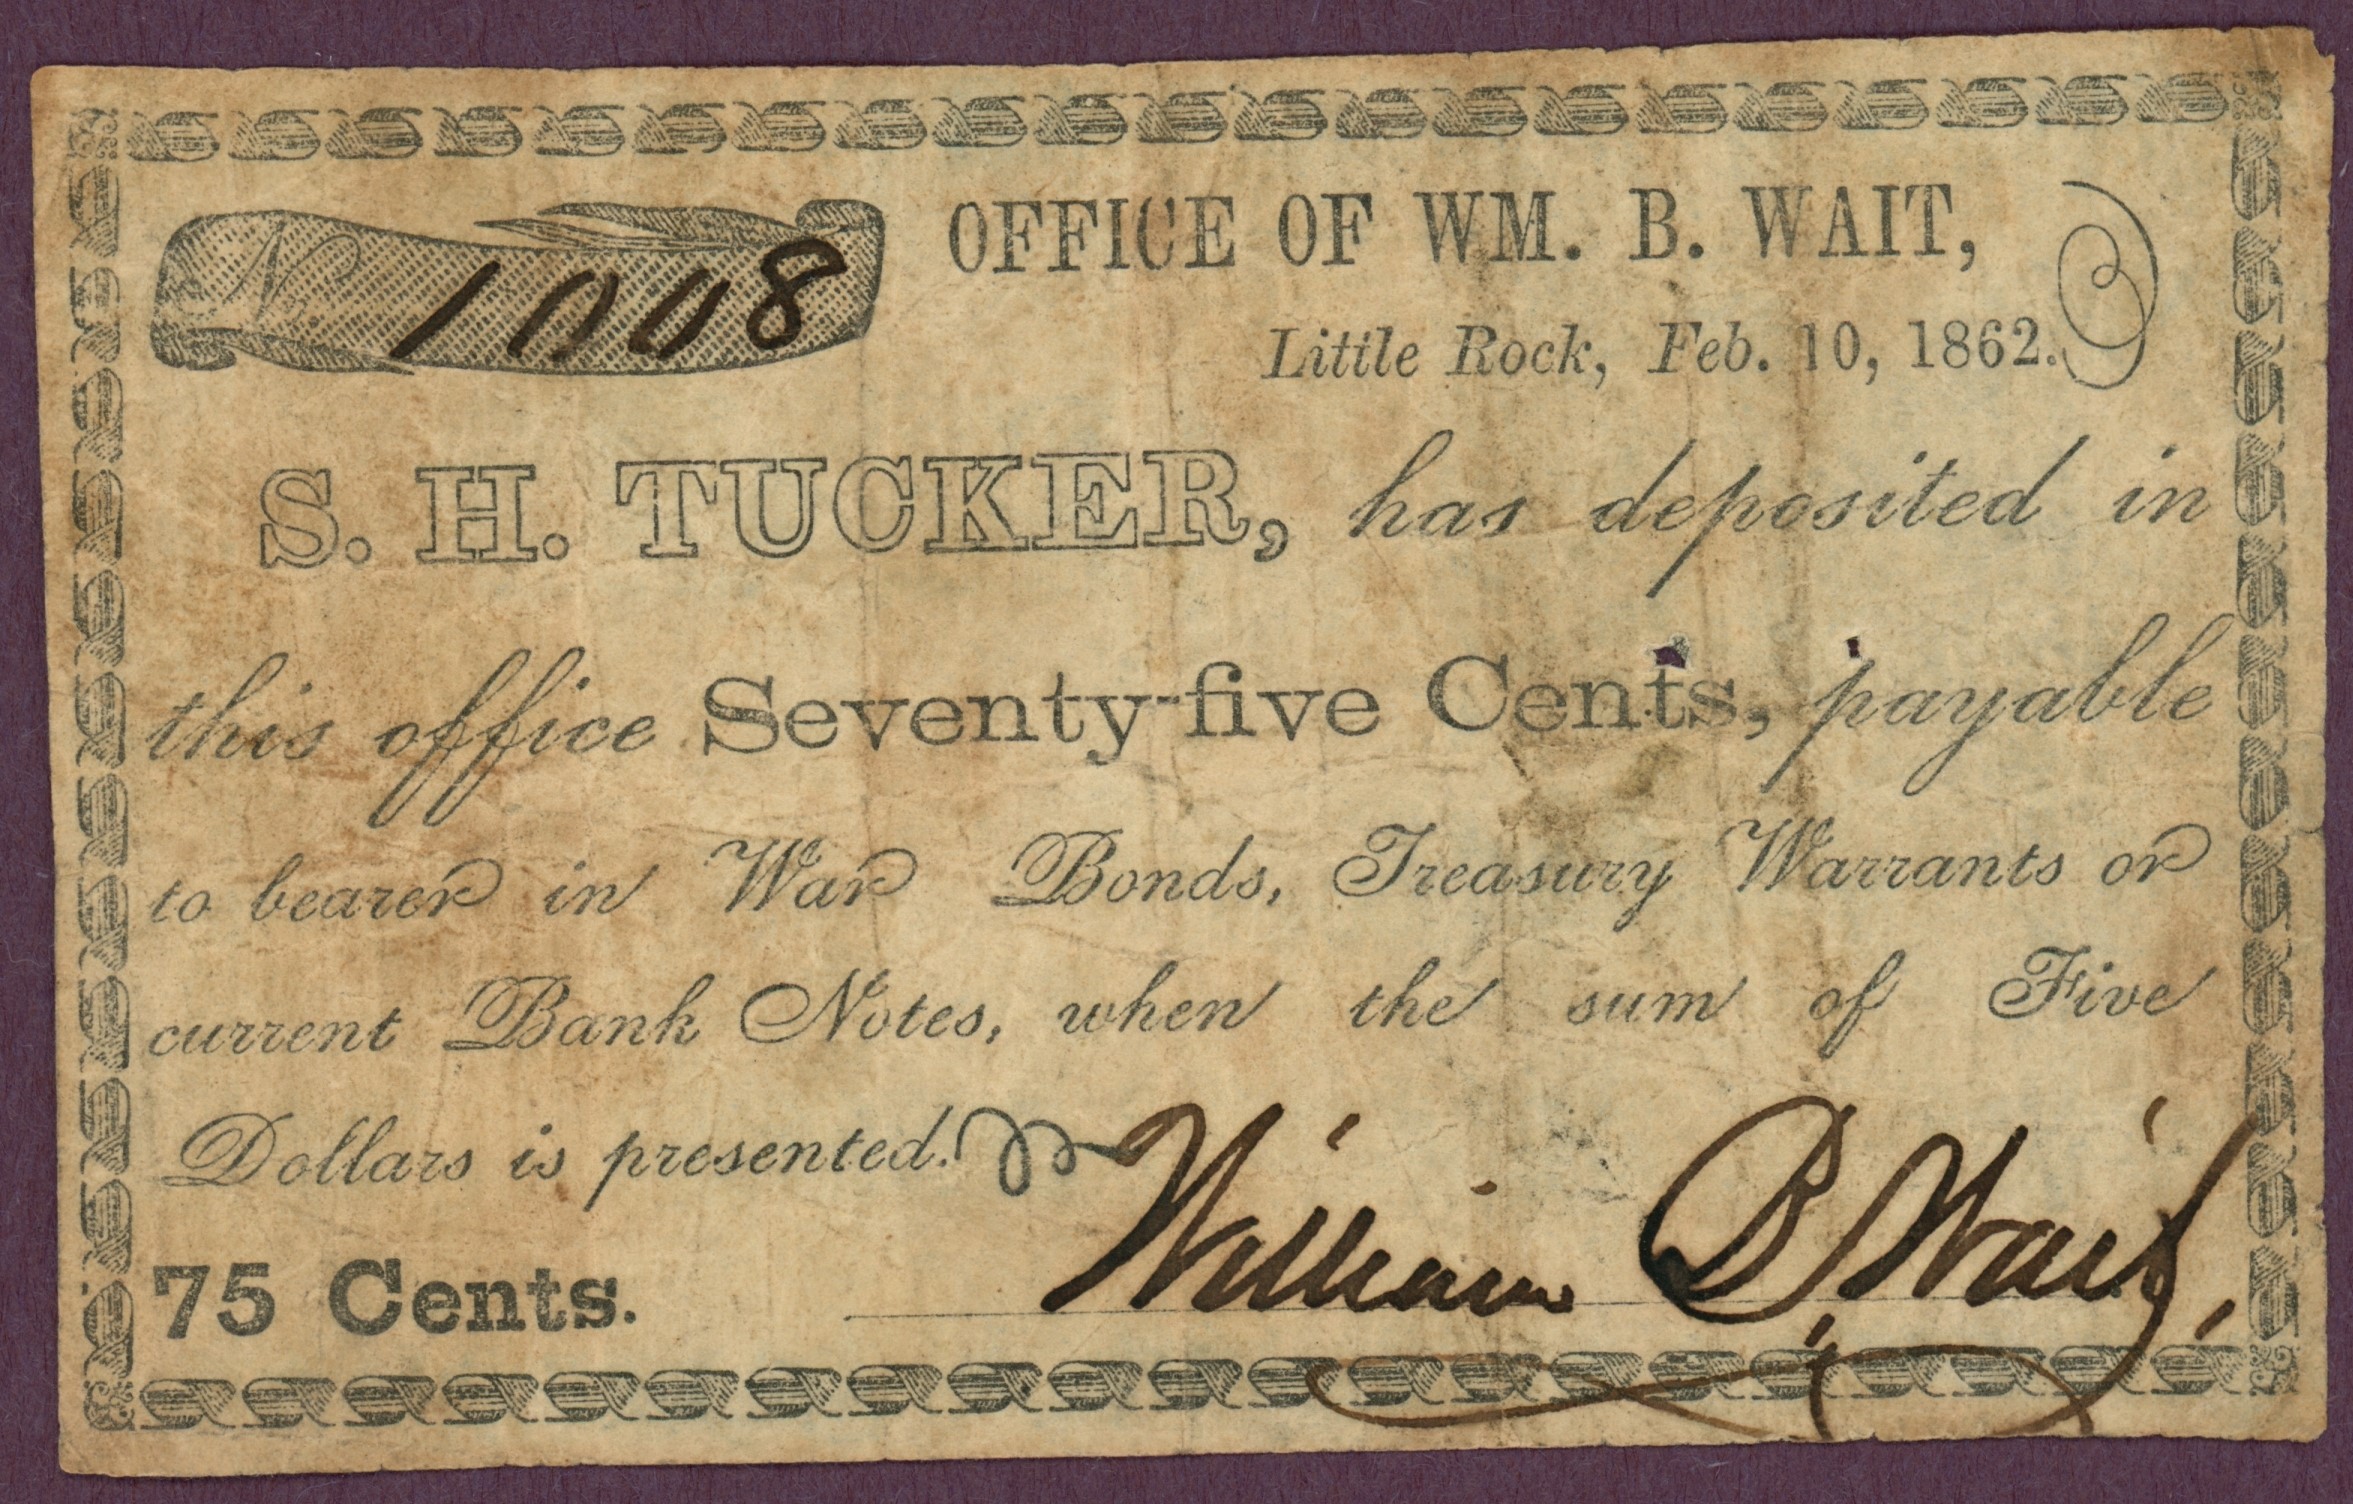 No. 1008
OFFICE OF WM. B. WAIT,
Little Rock, Feb. 10, 1862.
S. H. TUCKER, has deposited in
this office Seventy-five Cents, payable
to bearer in War Bonds, Treasury Warrants or
current Bank Notes, when the sum of Five
Dollars is presented.
William B Wait,
75 Cents.